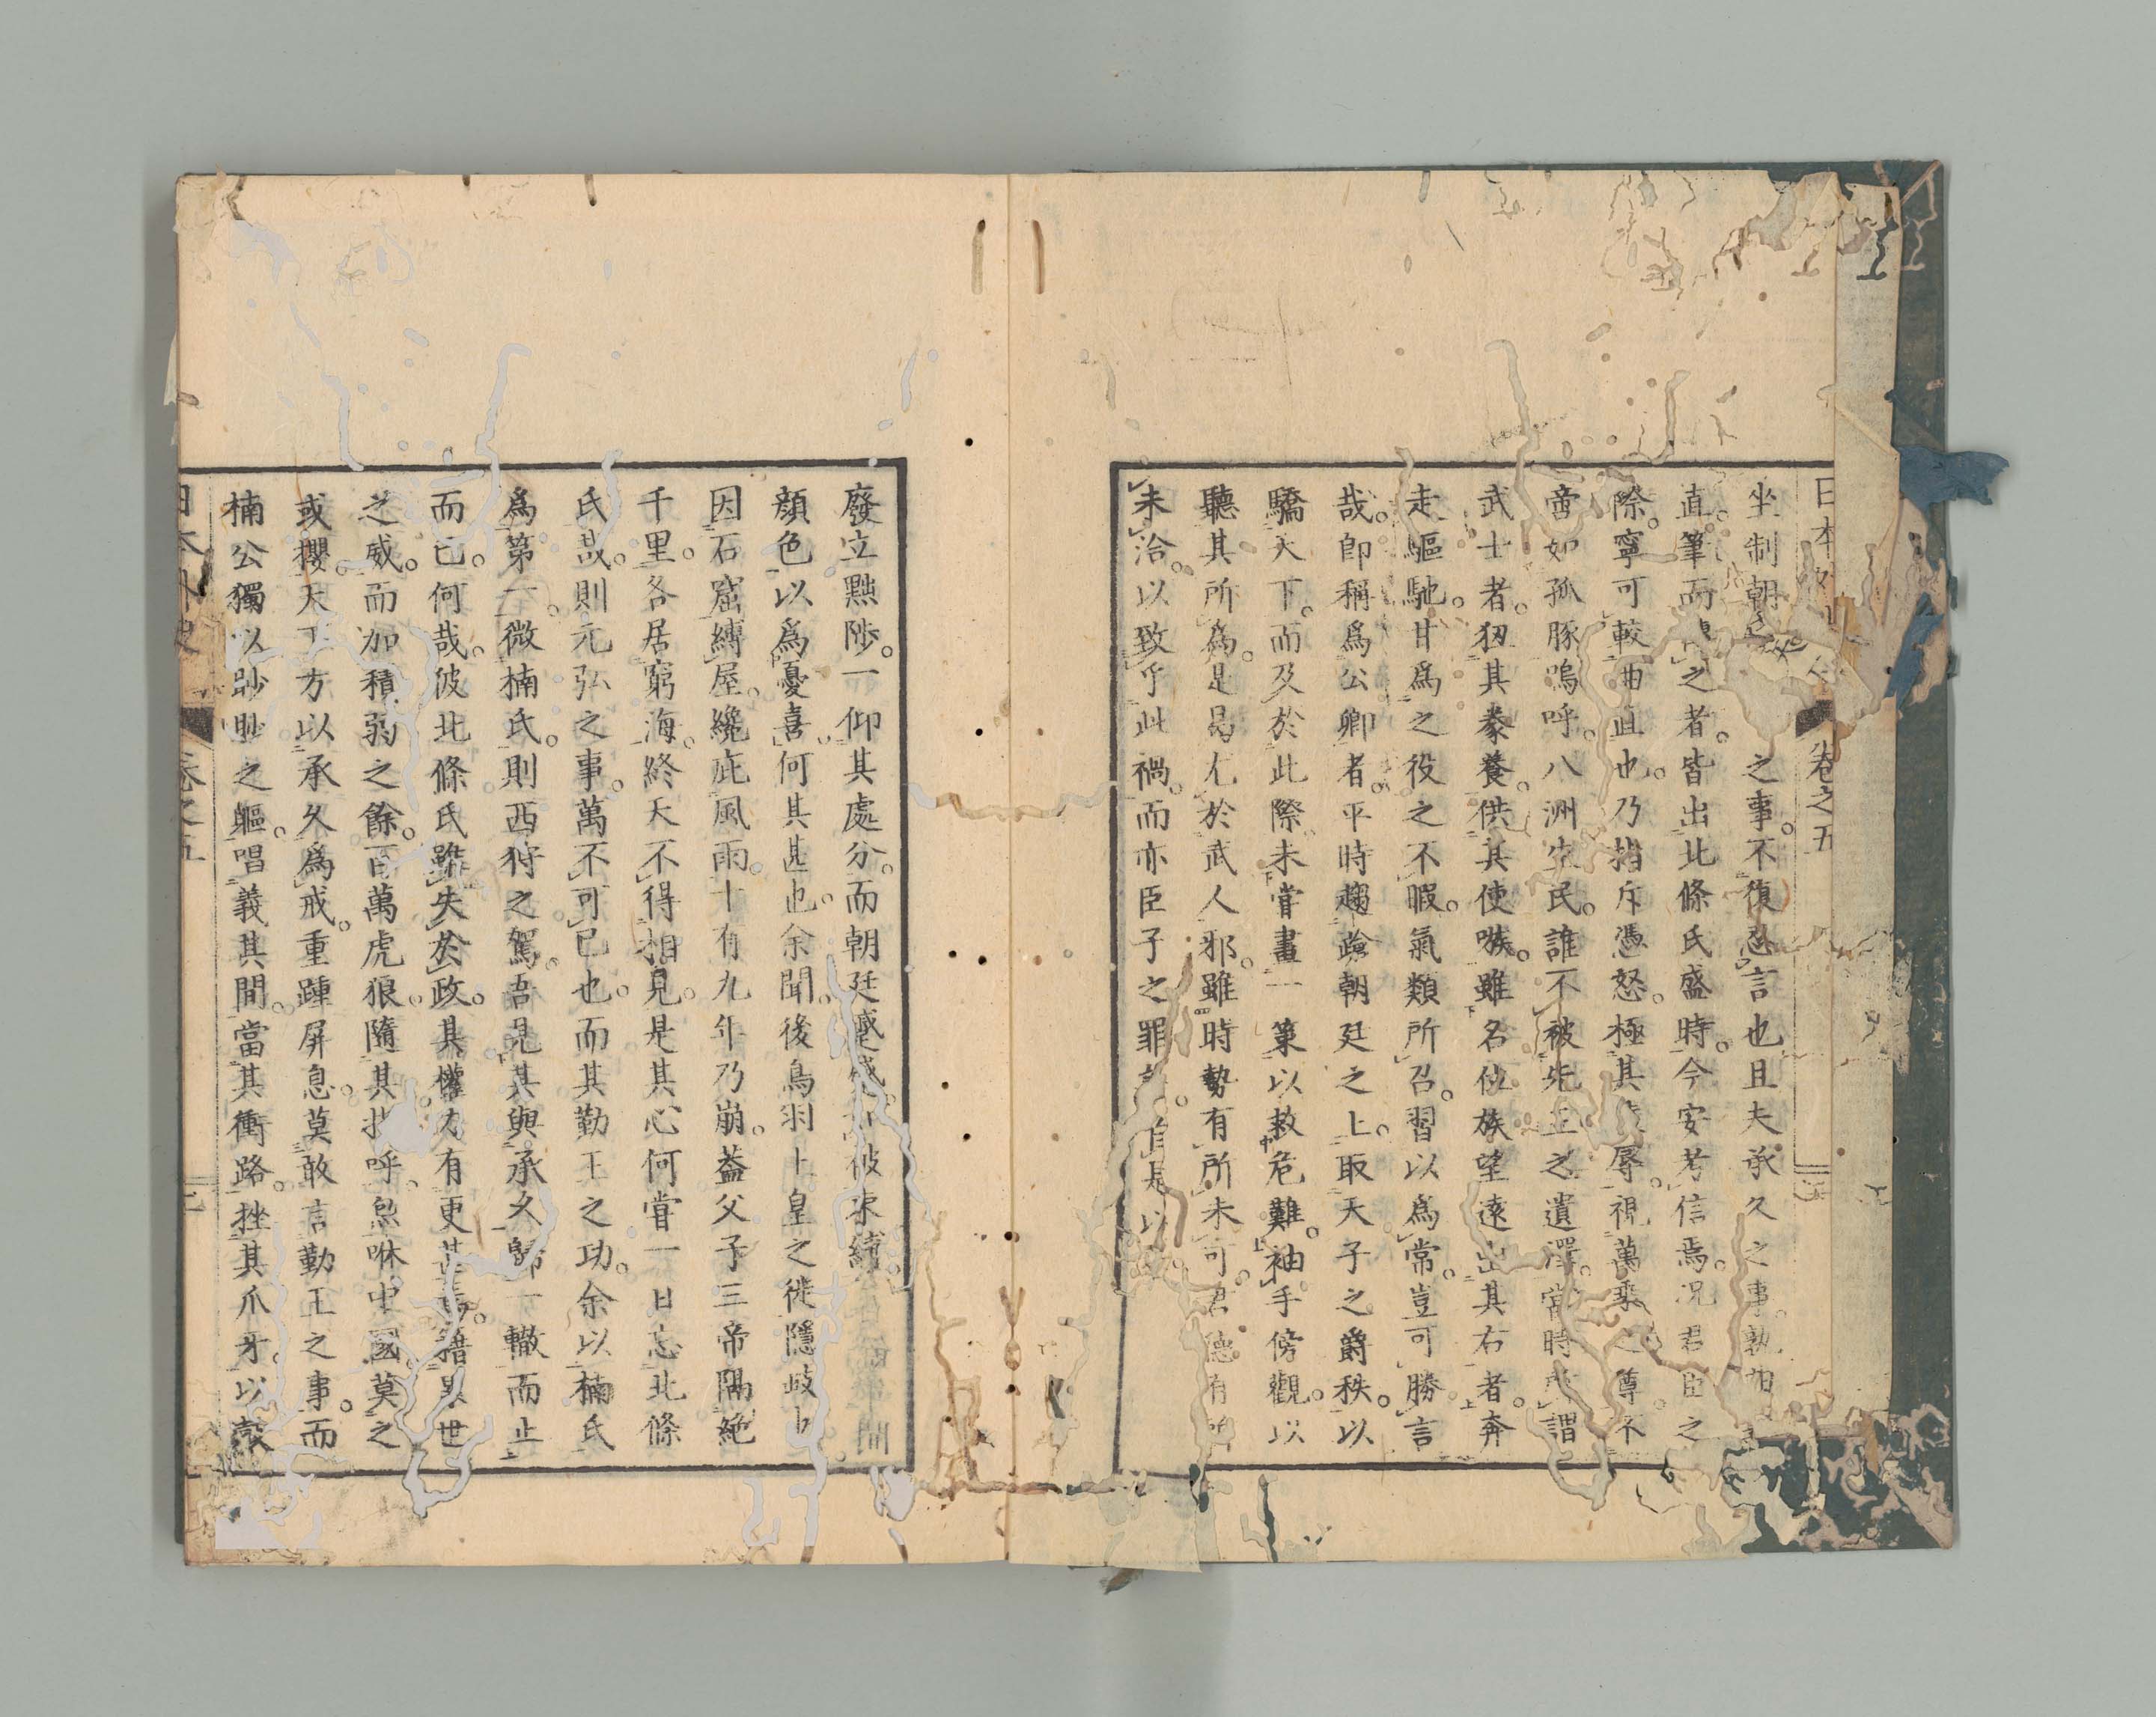 日本外史 卷之五
坐制朝之事。不復忍言也且夫承久之事。孰
直筆而之者。皆出北條氏盛時。今安考信焉。况君臣之
際。寧可較曲直也。乃指斥憑怒。極其辱。視萬乘之尊。不
啻如孤豚。嗚呼。八洲生民。誰不被先王之遺澤。當時所謂
武士者。㧽其豢養。供其使嗾。雖名位族望遠出其右者。奔
走驅馳。甘爲之役之不暇。氣類所召。習以爲常。豈可勝言
哉。卽稱爲公卿者。平時趨蹌朝廷之上。取天子之爵秩。以
驕天下。而及於此際。未嘗畫一策以救危難。袖手傍觀。以
聽其所爲。是曷尤於武人邪。雖時勢有所未可。君德有所
未洽。以致乎此禍。而亦臣子之罪自是以
廢立黜陟。一仰其處分。而朝廷蹙蹙彼束縛。間
顏色以爲憂喜。何其甚也。余聞。後鳥羽上皇之徙隱岐也
因石窟縛屋。纔庇風雨。十有九年乃崩。蓋父子三帝隔絕
千里。各居窮海。終天不得相見。是其心何嘗一日忘北條
氏哉。則元弘之事。萬不可已也。而其勤王之功。余以楠氏
爲第一。微楠氏。則西狩之駕。吾見其與承久歸一轍而止
而已。何哉。彼北條氏雖失於政。其權力有更甚焉。藉累世
之威。而加積弱之餘。百萬虎狼。隨其指呼。炰咻中國。莫之
或攖。天下方以承久爲戒。重踵屏息。莫敢言勤王之事。而
楠公獨以眇眇之軀。唱義其間。當其衝路。挫其爪牙。以鼓
日本外史 卷之五